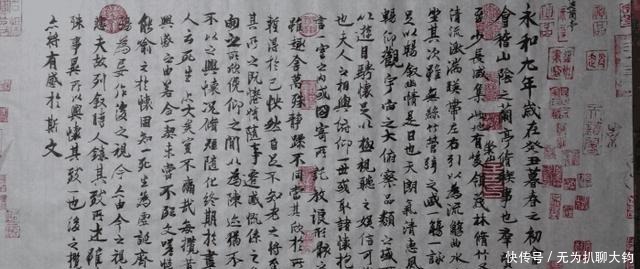 永和九年歲在癸丑暮春之初
會稽山陰之蘭亭脩稧事也羣
至少長咸集此地有峻領茂林脩竹
清流激湍暎帶左右引以為流觴曲水
坐其次雖無絲竹管弦之盛一觴一詠
足以暢敘幽情是日也天朗氣清惠風
暢仰觀宇宙之大俯察品類之盛
以遊目騁懷足以極視聽之娛信可
也夫人之相與俯仰一世或取諸懷抱
言一室之內或因寄所託放浪形骸
雖趣舍萬殊靜躁不同當其欣於所
暫得於己怏然自足不知老之將至
其所之既惓情隨事遷感慨係之
向之所欣俛仰之間以為陳迹猶不
不以之興懷況脩短隨化終期於盡
人云死生亦大矣豈不痛哉每攬昔
興感之由若合一契未嘗不臨文嗟悼
能喻之於懷固知一死生為虛誕齊
殤為妄作後之視今亦由今之視
悲夫故列敘時人錄其所述雖
殊事異所以興懷其致一也後之攬
亦將有感於斯文
快传号/无为扒聊大钧